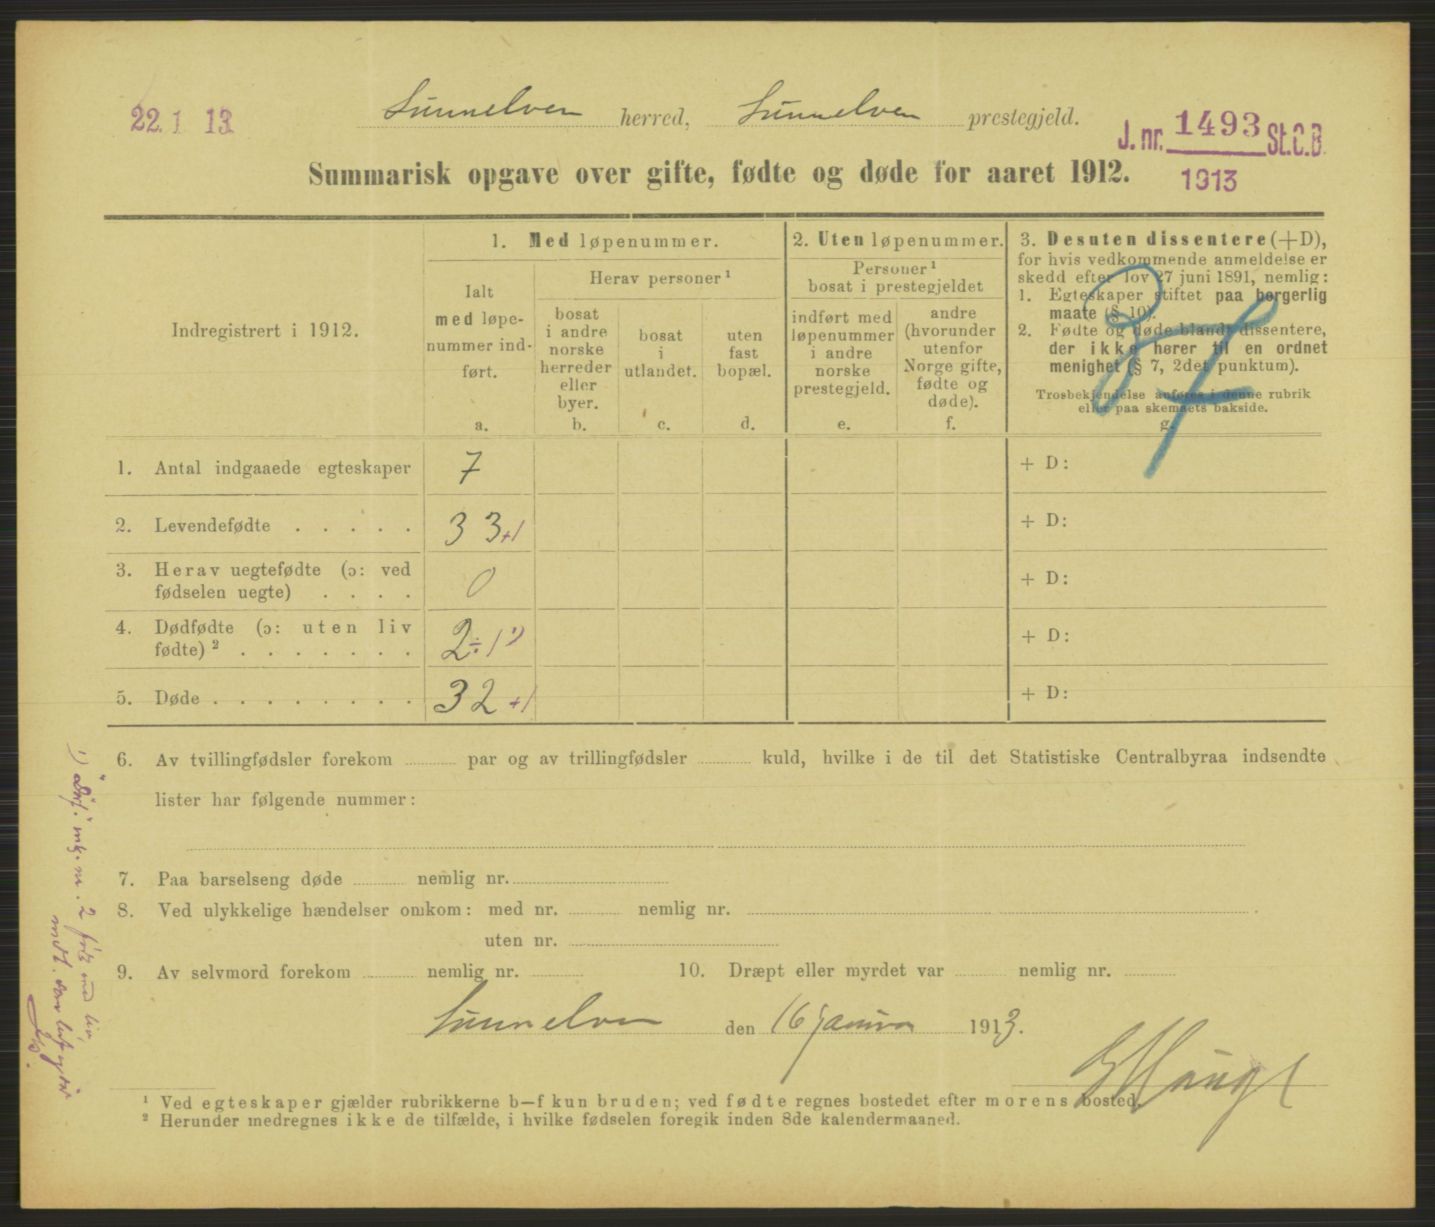 22.1 13
Sunnelven herred, Sunnelven prestegjeld.
J. nr. 1493 St.C.B.
1913
Summarisk opgave over gifte, fødte og døde for aaret 1912.
Indregistrert i 1912.
1. Med løpenummer.
Ialt
med løpe-
nummer ind-
ført.
a.
Herav personer ¹
bosat
i andre
norske
herreder
eller
byer.
b.
bosat
i
utlandet.
c.
uten
fast
bopæl.
d.
2. Uten løpenummer.
Personer ¹
bosat i prestegjeldet
indført med
løpenummer
i andre
norske
prestegjeld.
e.
andre
(hvorunder
utenfor
Norge gifte,
fødte og
døde).
f.
3. Desuten dissentere (+D),
for hvis vedkommende anmeldelse er
skedd efter lov 27 juni 1891, nemlig:
1. Egteskaper stiftet paa borgerlig
maate (§ 10).
2. Fødte og døde blandt dissentere,
der ikke hører til en ordnet
menighet (§ 7, 2det punktum).
Trosbekjendelse anføres i denne rubrik
eller paa skemaets bakside.
g.
1. Antal indgaaede egteskaper 7 + D:
2. Levendefødte . . . . . 33 +1 + D:
3. Herav uegtefødte (ɔ: ved
fødselen uegte) . . . . 0 + D:
4. Dødfødte (ɔ: uten liv
fødte) ² . . . . . . . 2 ÷1 ¹) + D:
5. Døde . . . . . . . . 32 +1 + D:
6. Av tvillingfødsler forekom par og av trillingfødsler kuld, hvilke i de til det Statistiske Centralbyraa indsendte
lister har følgende nummer:
7. Paa barselseng døde nemlig nr.
8. Ved ulykkelige hændelser omkom: med nr. nemlig nr. .
uten nr.
9. Av selvmord forekom nemlig nr. 10. Dræpt eller myrdet var nemlig nr.
Sunnelven den 16 januar 1913.
¹ Ved egteskaper gjælder rubrikkerne b—f kun bruden; ved fødte regnes bostedet efter morens bosted.
² Herunder medregnes ikke de tilfælde, i hvilke fødselen foregik inden 8de kalendermaaned.